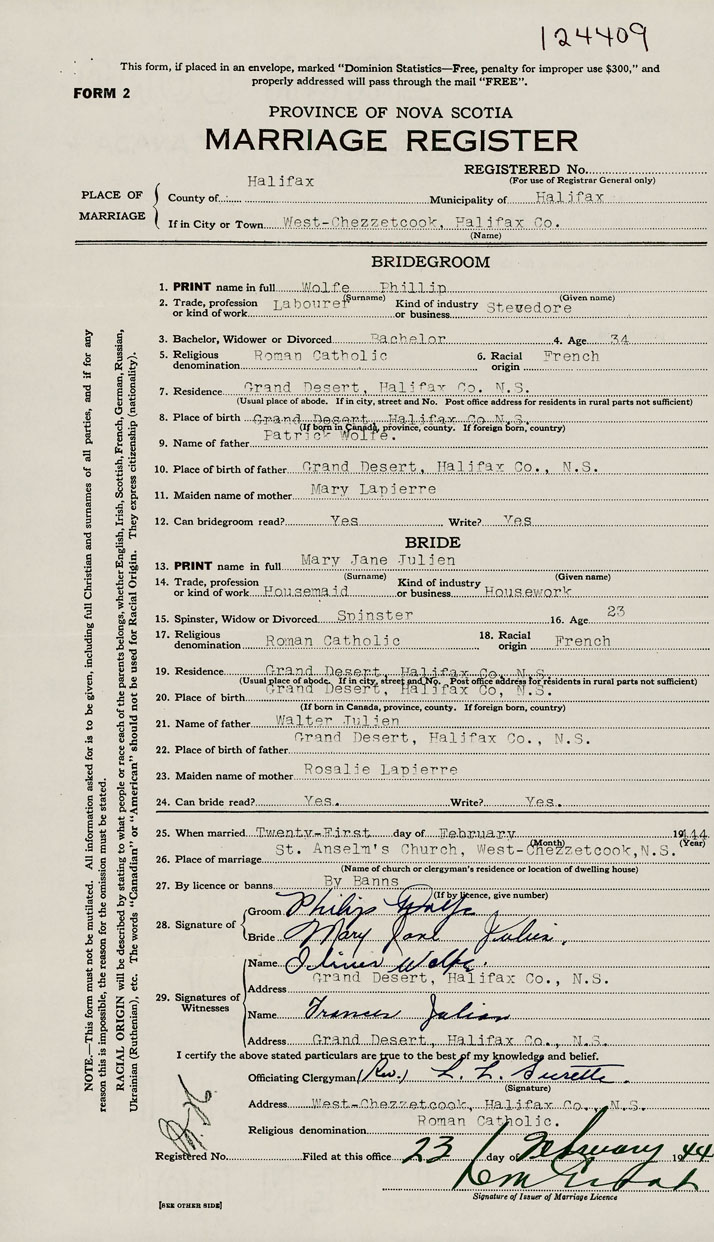 124409
This form, if placed in an envelope, marked "Dominion Statistics—Free, penalty for improper use $300," and
properly addressed will pass through the mail "FREE".
FORM 2
PROVINCE OF NOVA SCOTIA
MARRIAGE REGISTER
REGISTERED No.
(For use of Registrar General only)
PLACE OF MARRIAGE
County of Halifax Municipality of Halifax
If in City or Town West-Chezzetcook, Halifax Co.
(Name)
BRIDEGROOM
1. PRINT name in full Wolfe Phillip
(Surname) (Given name)
2. Trade, profession or kind of work Labourer Kind of industry or business Stevedore
3. Bachelor, Widower or Divorced Bachelor 4. Age 34
5. Religious denomination Roman Catholic 6. Racial origin French
7. Residence Grand Desert, Halifax Co. N.S.
(Usual place of abode. If in city, street and No. Post office address for residents in rural parts not sufficient)
8. Place of birth Grand Desert, Halifax Co N.S.
(If born in Canada, province, county. If foreign born, country)
9. Name of father Patrick Wolfe.
10. Place of birth of father Grand Desert, Halifax Co., N.S.
11. Maiden name of mother Mary Lapierre
12. Can bridegroom read? Yes Write? Yes
BRIDE
13. PRINT name in full Mary Jane Julien
(Surname) (Given name)
14. Trade, profession or kind of work Housemaid Kind of industry or business Housework
15. Spinster, Widow or Divorced Spinster 16. Age 23
17. Religious denomination Roman Catholic 18. Racial origin French
19. Residence Grand Desert, Halifax Co, N.S.
(Usual place of abode. If in city, street and No. Post office address for residents in rural parts not sufficient)
20. Place of birth Grand Desert, Halifax Co, N.S.
(If born in Canada, province, county. If foreign born, country)
21. Name of father Walter Julien
22. Place of birth of father Grand Desert, Halifax Co., N.S.
23. Maiden name of mother Rosalie Lapierre
24. Can bride read? Yes. Write? Yes.
25. When married Twenty-First day of February 1944
(Month) (Year)
26. Place of marriage St. Anselm's Church, West-Chezzetcook, N.S.
(Name of church or clergyman's residence or location of dwelling house)
27. By licence or banns By Banns
(If by licence, give number)
28. Signature of
Groom Philip Wolfe
Bride Mary Jane Julien.
29. Signatures of Witnesses
Name Oliver Wolfe.
Address Grand Desert, Halifax Co., N.S.
Name Frances Julian
Address Grand Desert, Halifax Co., N.S.
I certify the above stated particulars are true to the best of my knowledge and belief.
Officiating Clergyman (Rev.) L. L. Surette.
(Signature)
Address West-Chezzetcook, Halifax Co., N.S.
Religious denomination Roman Catholic.
Registered No. Filed at this office 23 day of February 1944
Signature of Issuer of Marriage Licence
[SEE OTHER SIDE]
NOTE.—This form must not be mutilated. All information asked for is to be given, including full Christian and surnames of all parties, and if for any
reason this is impossible, the reason for the omission must be stated.
RACIAL ORIGIN will be described by stating to what people or race each of the parents belongs, whether English, Irish, Scottish, French, German, Russian,
Ukrainian (Ruthenian), etc. The words "Canadian" or "American" should not be used for Racial Origin. They express citizenship (nationality).